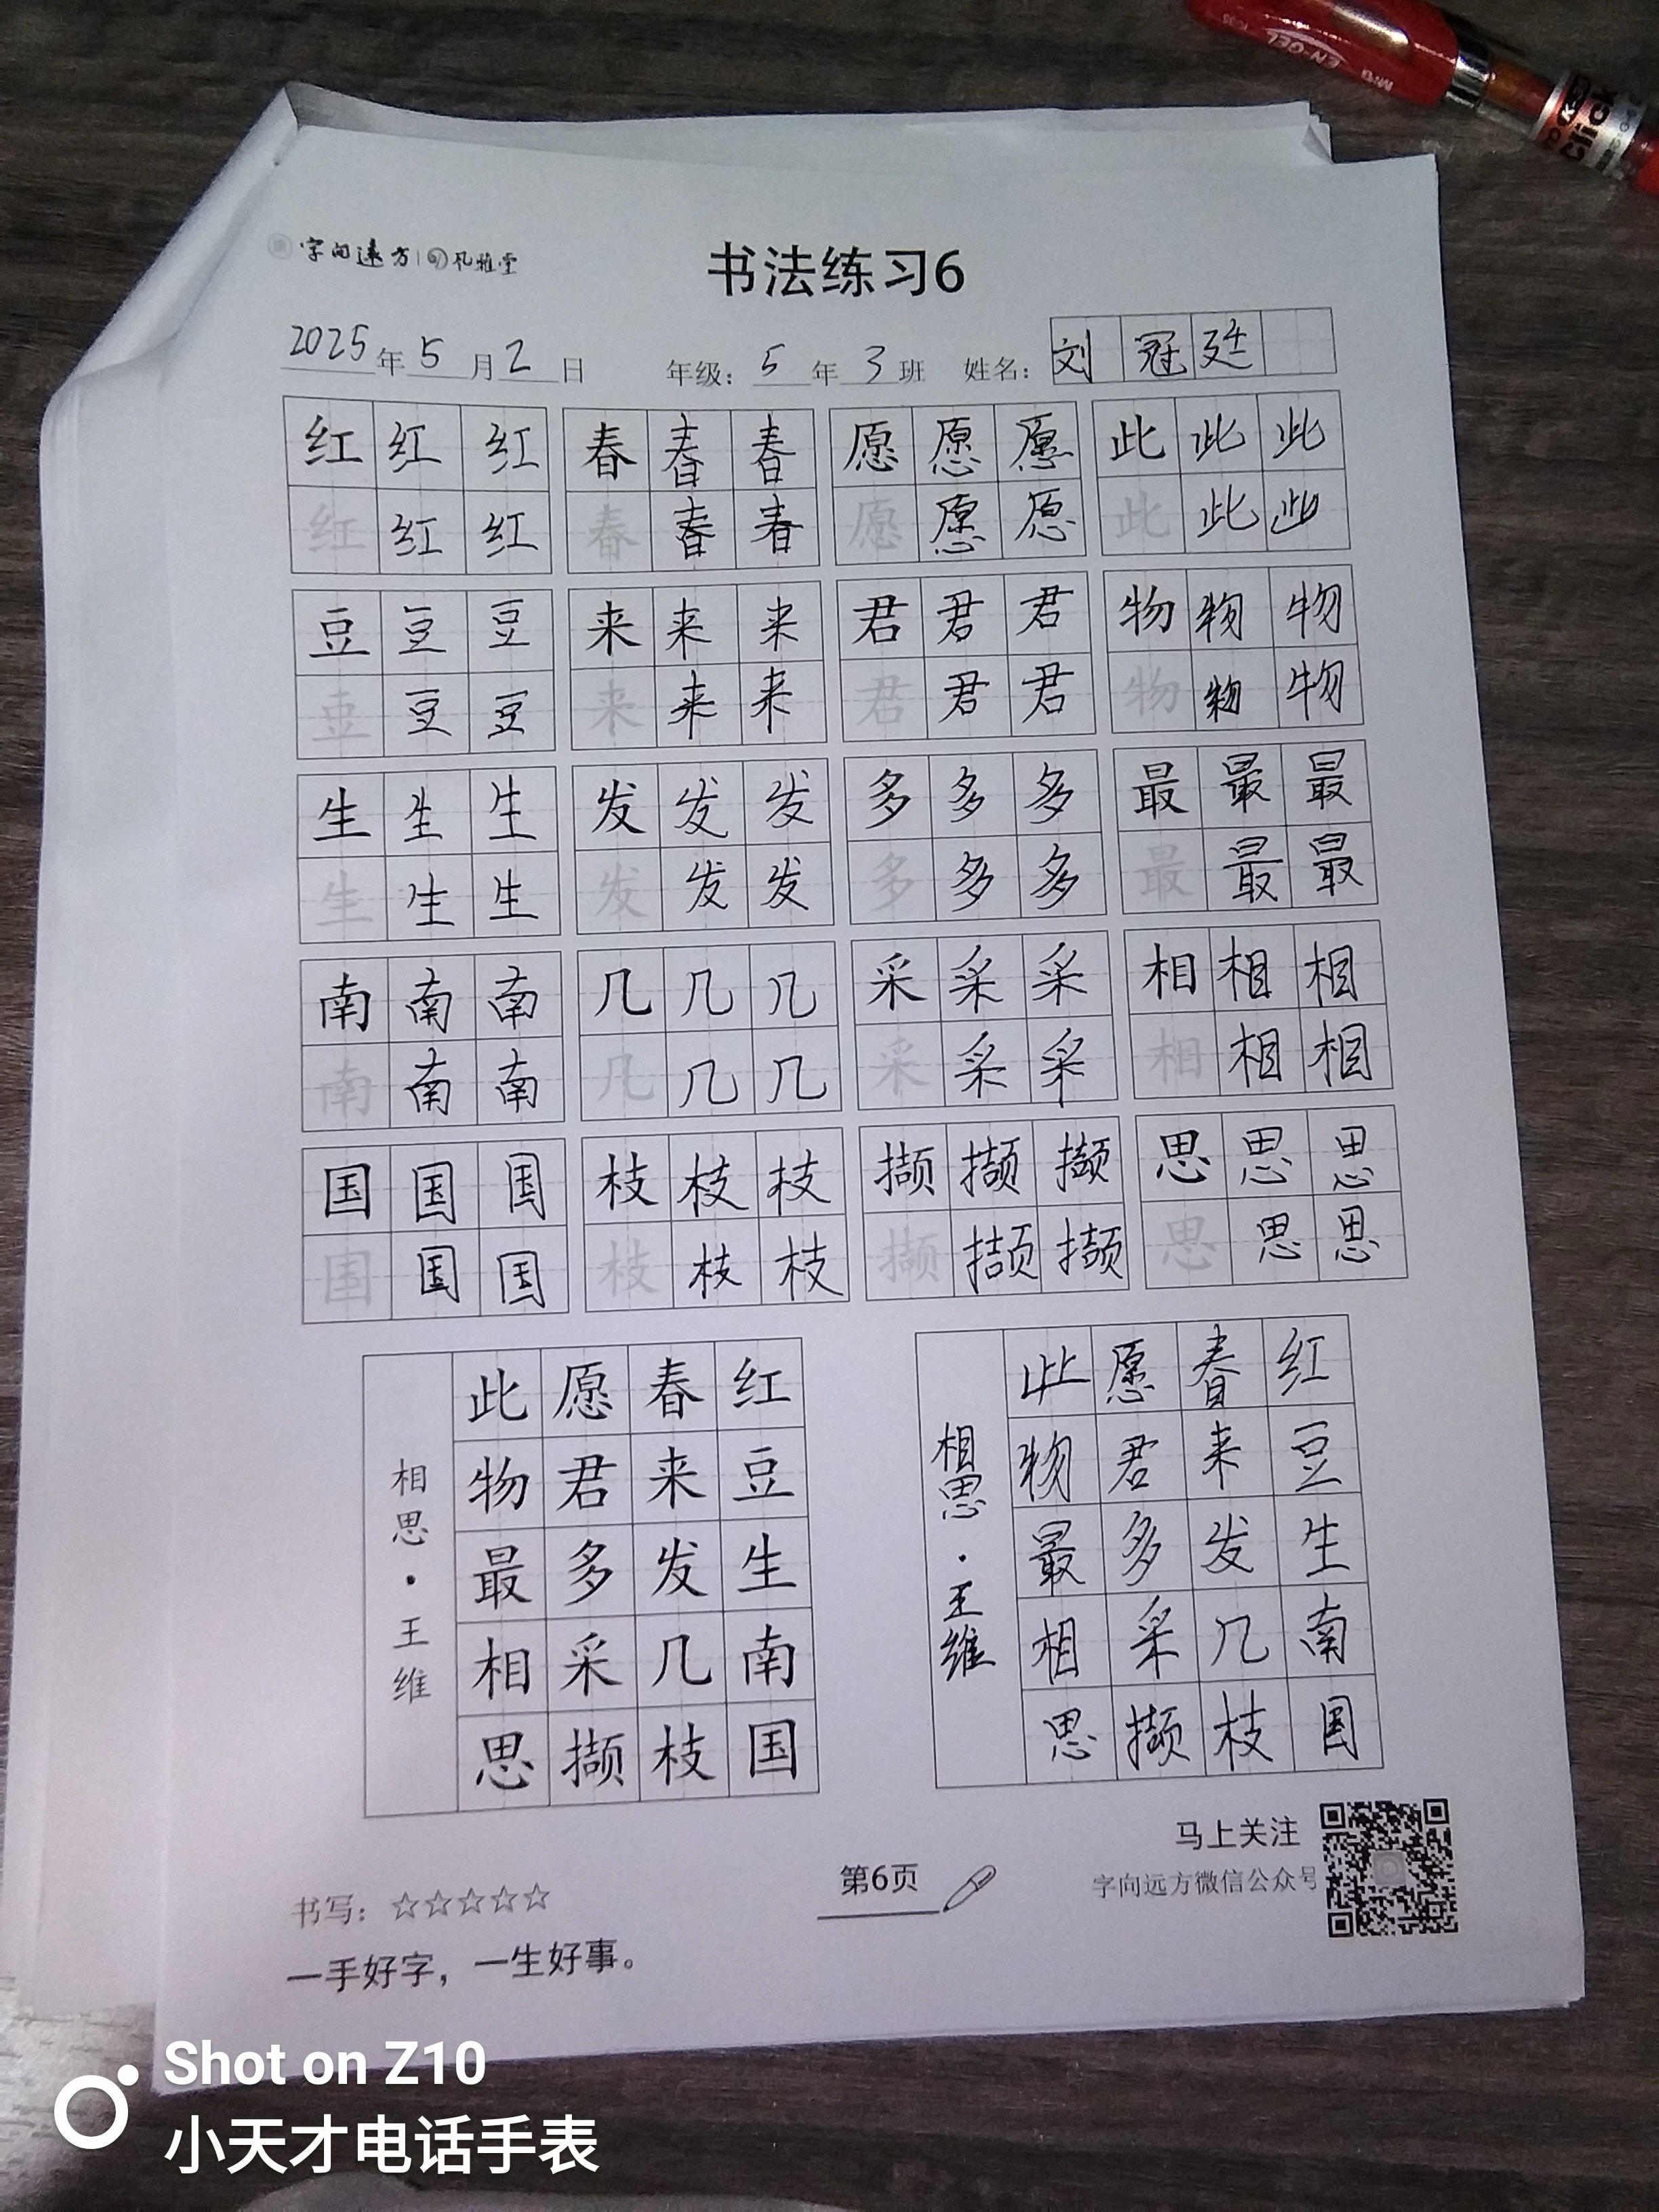 字向远方 凡雅堂
书法练习6
2025年5月2日 年级：5年3班 姓名：刘冠廷
红红红 春春春 愿愿愿 此此此
红红红 春春春 愿愿愿 此此此
豆豆豆 来来来 君君君 物物物
豆豆豆 来来来 君君君 物物物
生生生 发发发 多多多 最最最
生生生 发发发 多多多 最最最
南南南 几几几 采采采 相相相
南南南 几几几 采采采 相相相
国国国 枝枝枝 撷撷撷 思思思
国国国 枝枝枝 撷撷撷 思思思
红豆生南国
春来发几枝
愿君多采撷
此物最相思
相思·王维
红豆生南国
春来发几枝
愿君多采撷
此物最相思
相思·王维
马上关注
字向远方微信公众号
第6页
书写：☆☆☆☆☆
一手好字，一生好事。
EN-GEL
M&G
K-35
Click
Shot on Z10
小天才电话手表